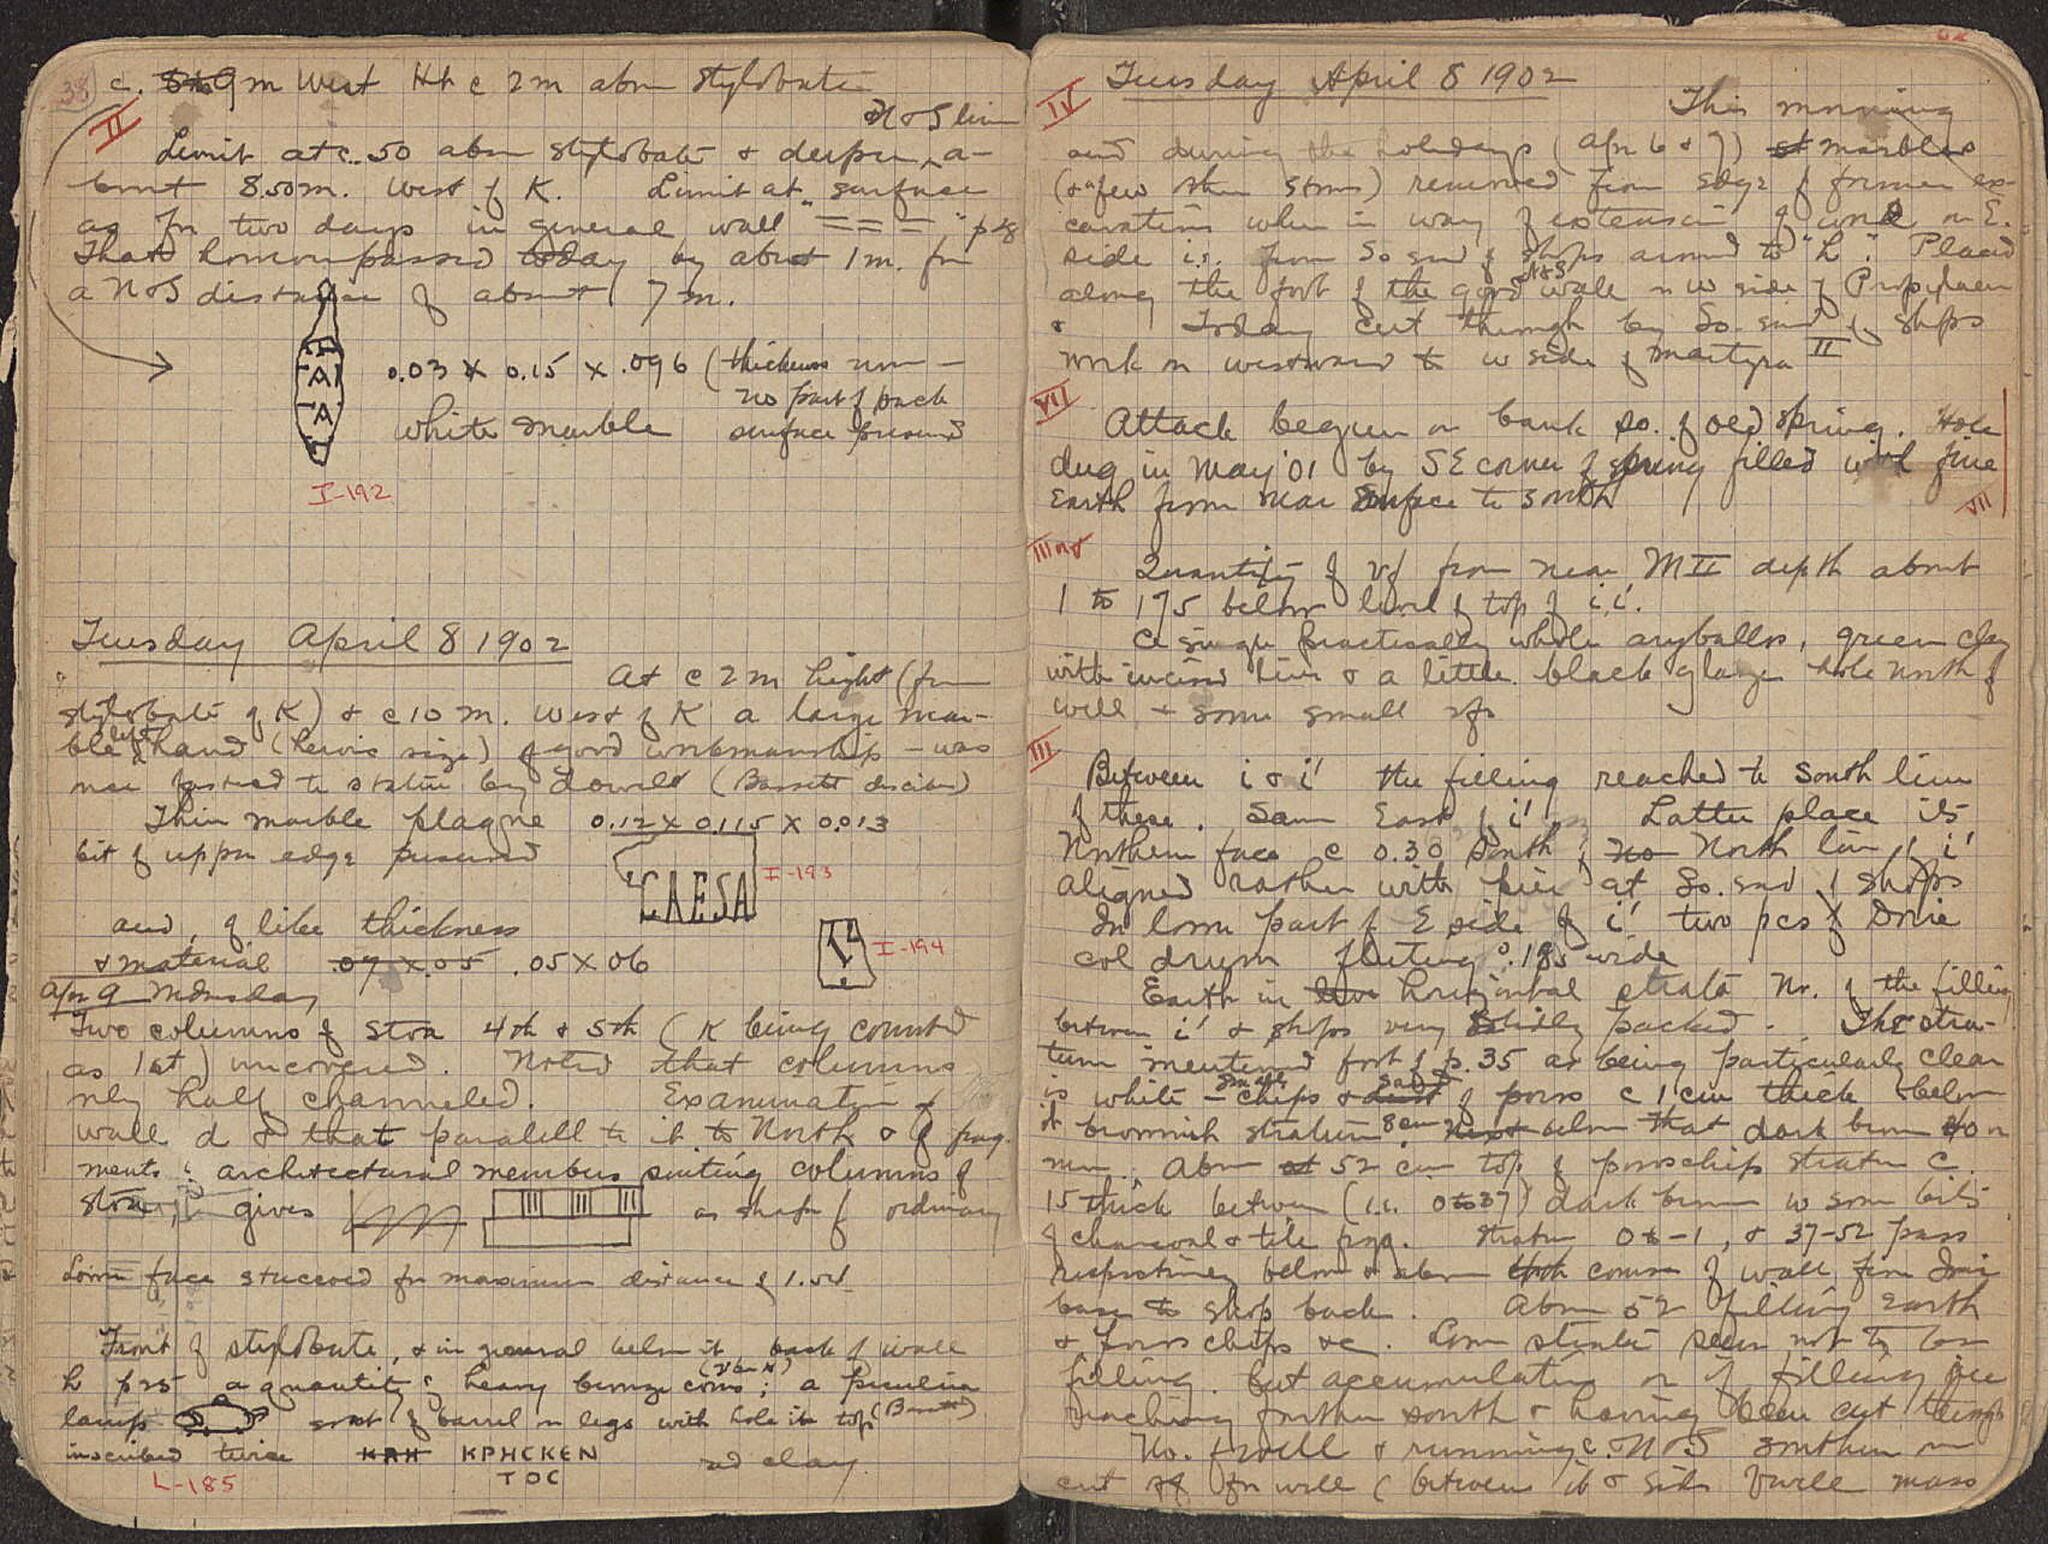 38
c. 9 m West Ht c 2 m above stylobate
II
N & S line
Limit at c. .50 above stylobate & deeper, a-
bout 8.50 m. West of K. Limit at surface
as for two days in general wall " = = = " p 28
That however passed today by about 1 m. for
a N & S distance of about 7 m.
TAI
A
0.03 x 0.15 x .096 (thickness
no part of back
White marble surface preserved
I-192
Tuesday April 8 1902
At c 2 m height (from
stylobate of K) & c 10 m. West of K a large mar-
ble left hand (heroic size) of good workmanship - was
once fastened to statue by dowels (Bassett describes)
Thin marble plaque 0.12 x 0.115 x 0.013
bit of upper edge preserved
CAESA
I-193
and, of like thickness
& material .07 x .05 .05 x 06
I-194
Apr 9 Wednesday
Two columns of stoa 4th & 5th (K being counted
as 1st) uncovered. Noted that columns
only half channeled. Examination of
wall d & that parallel to it to North & of frag-
ments of architectural members suiting columns of
stoa, gives as shape of ordinary
Lower face stuccoed for maximum distance of 1.04
Front of stylobate, & in general below it, back of wall
h p 25 a quantity of heavy bronze coins; a peculiar
lamp sort of barrel on legs with hole in top (Bassett)
inscribed twice KPH KPHCKEN red clay.
TOC
L-185
Tuesday April 8 1902
IV
This morning
and during the holidays (Apr 6 & 7) marbles
(& a few other stones) removed from edge of former ex-
cavations when in way of extension of work on E.
side i.e. from So end of shops around to "L". Placed
along the foot of the good N & S wall on W side of Propylaea
& Today cut through by So. end of shops
work on westward to W side of martyra II
VII
Attack begun on bank so. of old spring. Hole
dug in May '01 by SE corner of spring filled with fine
Earth from near surface to south
VII
III
Quantity of vf from near MII depth about
1 to 1 75 below level of top of i, i'.
A single practically whole aryballos, green clay
with incised line & a little black glaze hole north of
well & some small vfs
III
Between i & i' the filling reached to South line
of these. Same East of i' Latter place its
Northern face c 0.30 South of North line of i'
aligned rather with pier at So. end of shops
In lower part of E side of i' two pcs of Doric
col drum fluting c .185 wide
Earth in horizontal strata No. of the filling
between i' & shops very solidly packed. The stra-
tum mentioned foot of p. 35 as being particularly clear
is white - small chips & sand of poros c 1 cm thick below
it brownish stratum 8 cm next below that dark brown 40 or
more. Above at 52 cm top of poros chip stratum c.
15 thick between (i.e. 0 to 37) dark brown w some bits
of charcoal & tile frag. Stratum 0 to -1, & 37-52 pass
respectively below & above course of wall from Doric
base to shop back. Above 52 filling earth
& poros chips &c. Lower strata seem not to be
filling. but accumulation or if filling once
reaching further south & having been cut through
No. of well & running c. N & S southern
cut for well (between it & side of well mass